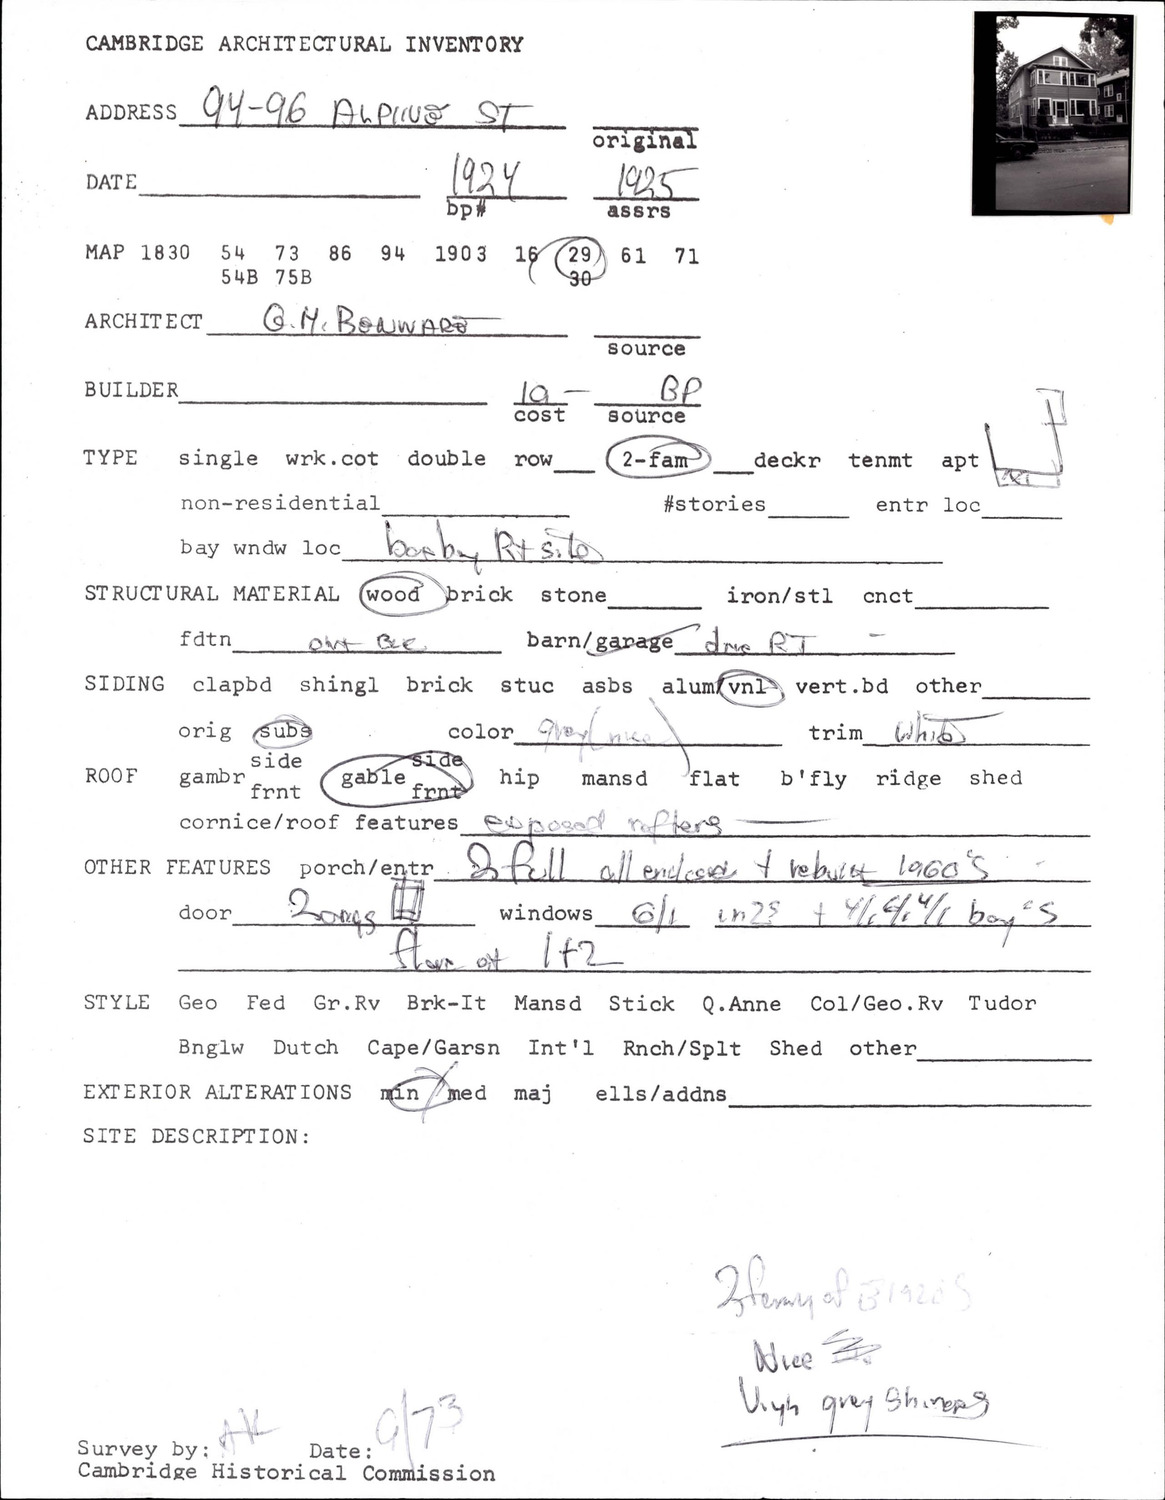 CAMBRIDGE ARCHITECTURAL INVENTORY
ADDRESS 94-96 ALPINE ST
original
DATE 1924 1925
bp# assrs
MAP 1830 54 73 86 94 1903 16 29 61 71
54B 75B 30
ARCHITECT G.H. BENWARE
source
BUILDER 10 — BP
cost source
TYPE single wrk.cot double row 2-fam deckr tenmt apt
non-residential #stories entr loc
bay wndw loc box bay Rt side
STRUCTURAL MATERIAL wood brick stone iron/stl cnct
fdtn barn/garage drive RT –
SIDING clapbd shingl brick stuc asbs alum/vnl vert.bd other
orig subs color grey (nice) trim white
side side
ROOF gambr gable hip mansd flat b'fly ridge shed
frnt frnt
cornice/roof features exposed rafters
OTHER FEATURES porch/entr 2 full all enclosed + rebuilt 1960'S
door 2 windows 6/1 in 2s + 4/1, 6/1, 4/1 bay's
at 1+2
STYLE Geo Fed Gr.Rv Brk-It Mansd Stick Q.Anne Col/Geo.Rv Tudor
Bnglw Dutch Cape/Garsn Int'l Rnch/Splt Shed other
EXTERIOR ALTERATIONS min med maj ells/addns
SITE DESCRIPTION:
2 family of 1920S
Nice
Vinyl grey
Survey by: AK Date: 9/73
Cambridge Historical Commission